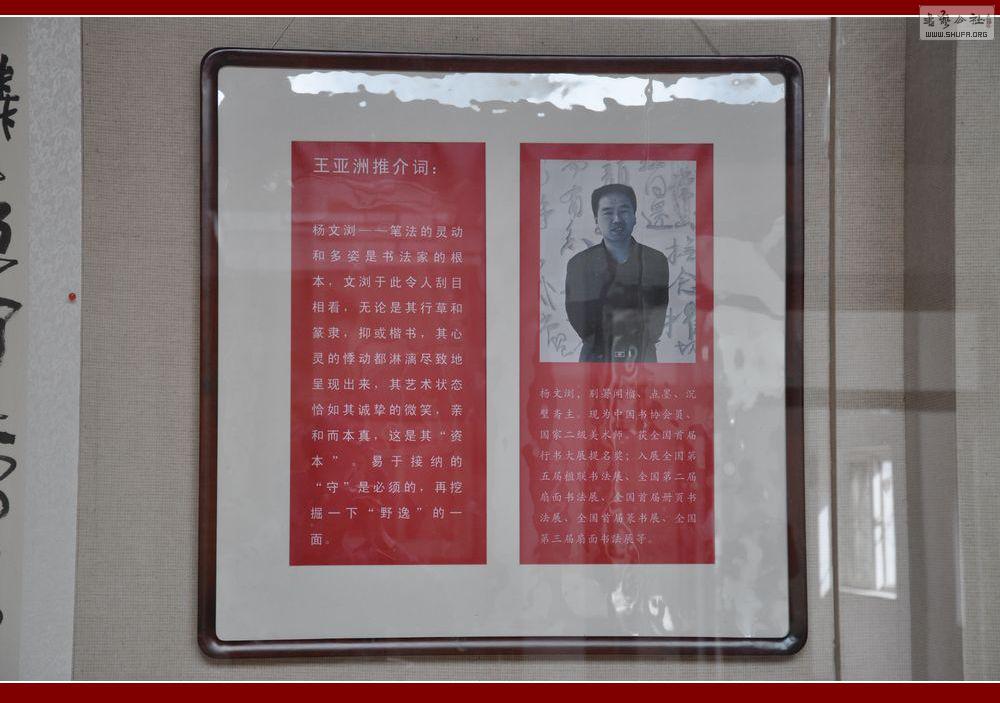 王亚洲推介词：
杨文浏——笔法的灵动
和多姿是书法家的根
本，文浏于此令人刮目
相看，无论是其行草和
篆隶，抑或楷书，其心
灵的悸动都淋漓尽致地
呈现出来，其艺术状态
恰如其诚挚的微笑，亲
和而本真，这是其“资
本”。易于接纳的
“守”是必须的，再挖
掘一下“野逸”的一
面。
杨文浏，别署闲榴、点墨、沉
壁斋主。现为中国书协会员、
国家二级美术师。获全国首届
行书大展提名奖；入展全国第
五届楹联书法展、全国第二届
扇面书法展、全国首届册页书
法展、全国首届篆书展、全国
第三届扇面书法展等。
书艺公社
WWW.SHUFA.ORG